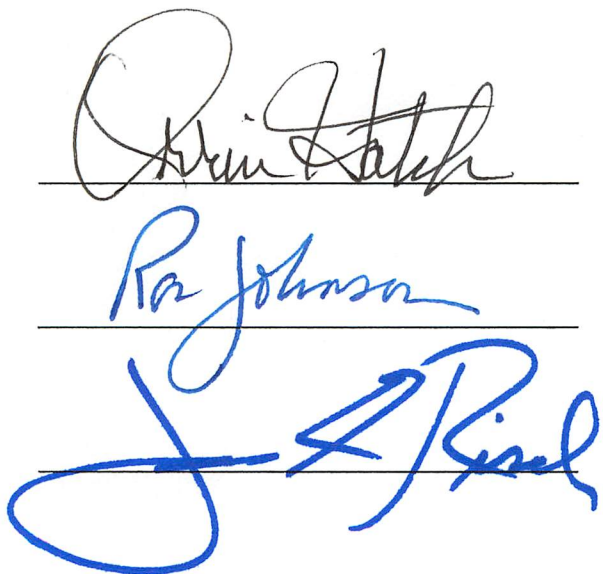 Orrin Hatch
Ron Johnson
James E Risch